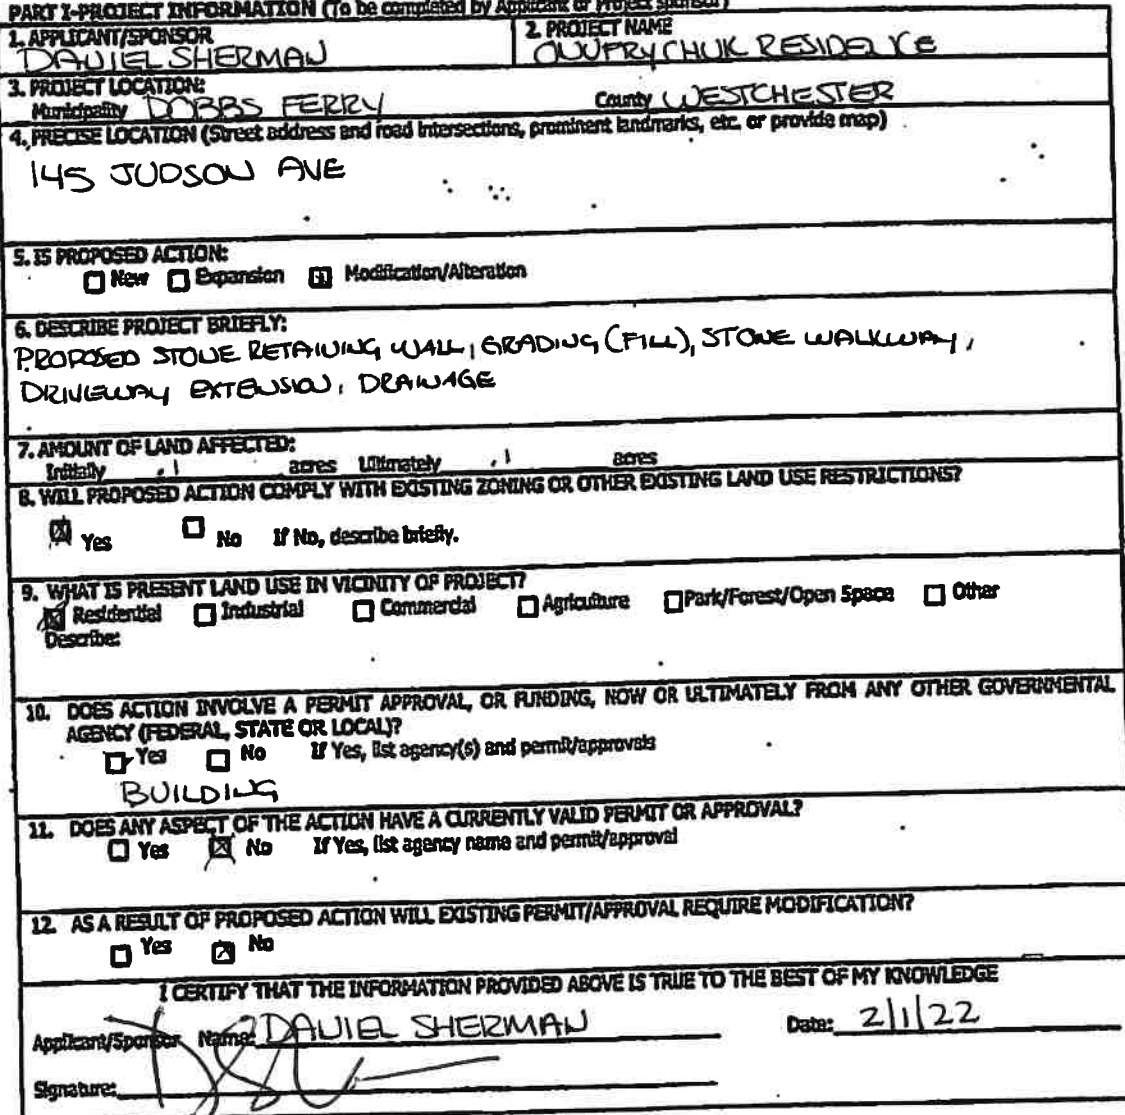 PART I-PROJECT INFORMATION (To be completed by Applicant or Project sponsor)
1. APPLICANT/SPONSOR
DANIEL SHERMAN
2. PROJECT NAME
ONUFRYCHUK RESIDENCE
3. PROJECT LOCATION:
Municipality DOBBS FERRY County WESTCHESTER
4. PRECISE LOCATION (Street address and road intersections, prominent landmarks, etc. or provide map)
145 JUDSON AVE
5. IS PROPOSED ACTION:
☐ New ☐ Expansion ☒ Modification/Alteration
6. DESCRIBE PROJECT BRIEFLY:
PROPOSED STONE RETAINING WALL, GRADING (FILL), STONE WALKWAY,
DRIVEWAY EXTENSION, DRAINAGE
7. AMOUNT OF LAND AFFECTED:
Initially .1 acres Ultimately .1 acres
8. WILL PROPOSED ACTION COMPLY WITH EXISTING ZONING OR OTHER EXISTING LAND USE RESTRICTIONS?
☒ Yes ☐ No If No, describe briefly.
9. WHAT IS PRESENT LAND USE IN VICINITY OF PROJECT?
☒ Residential ☐ Industrial ☐ Commercial ☐ Agriculture ☐ Park/Forest/Open Space ☐ Other
Describe:
10. DOES ACTION INVOLVE A PERMIT APPROVAL, OR FUNDING, NOW OR ULTIMATELY FROM ANY OTHER GOVERNMENTAL
AGENCY (FEDERAL, STATE OR LOCAL)?
☐ Yes ☐ No If Yes, list agency(s) and permit/approvals
BUILDING
11. DOES ANY ASPECT OF THE ACTION HAVE A CURRENTLY VALID PERMIT OR APPROVAL?
☐ Yes ☒ No If Yes, list agency name and permit/approval
12. AS A RESULT OF PROPOSED ACTION WILL EXISTING PERMIT/APPROVAL REQUIRE MODIFICATION?
☐ Yes ☒ No
I CERTIFY THAT THE INFORMATION PROVIDED ABOVE IS TRUE TO THE BEST OF MY KNOWLEDGE
Applicant/Sponsor Name: DANIEL SHERMAN Date: 2/1/22
Signature: